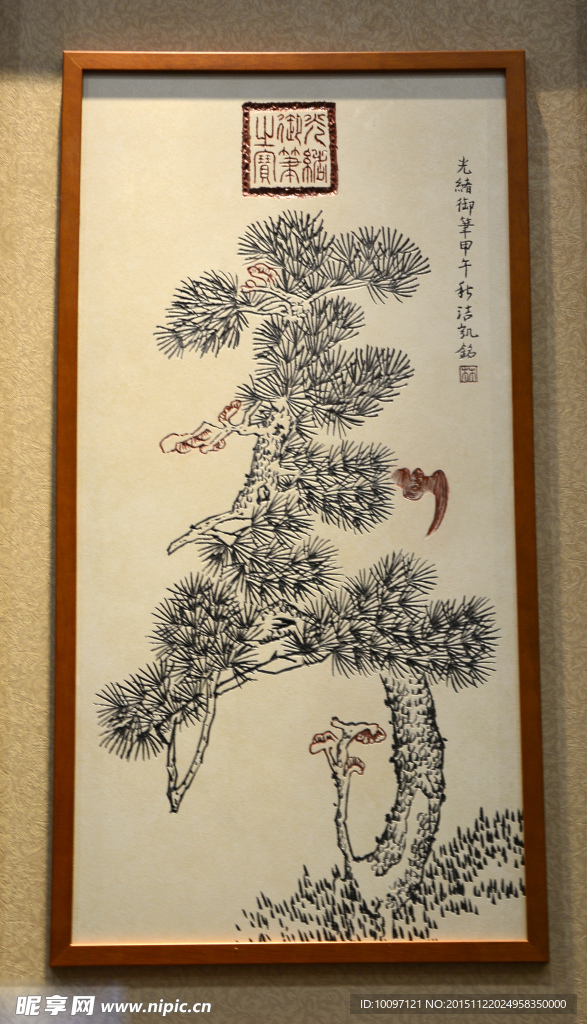 光緒
御筆
之寶
光緒御筆甲午秋洁凱銘
昵享网 www.nipic.cn
ID:10097121 NO:20151122024958350000